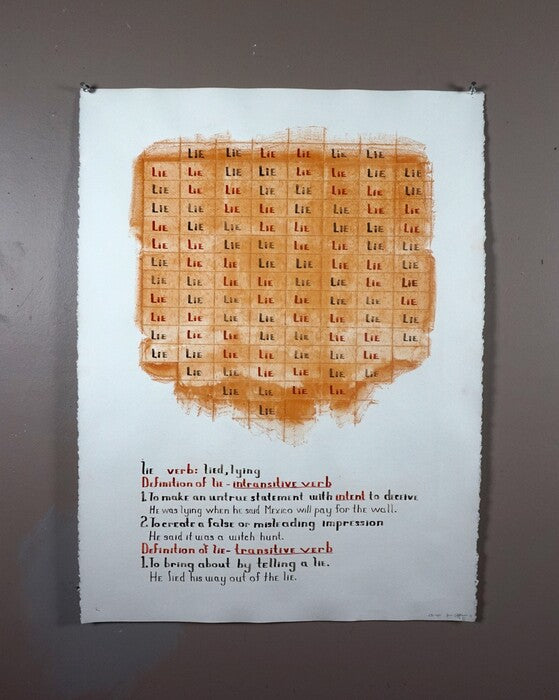 LIE LIE LIE LIE LIE LIE
LIE LIE LIE LIE LIE LIE LIE LIE
LIE LIE LIE LIE LIE LIE LIE LIE
LIE LIE LIE LIE LIE LIE LIE LIE
LIE LIE LIE LIE LIE LIE LIE LIE
LIE LIE LIE LIE LIE LIE LIE LIE
LIE LIE LIE LIE LIE LIE LIE LIE
LIE LIE LIE LIE LIE LIE LIE LIE
LIE LIE LIE LIE LIE LIE LIE LIE
LIE LIE LIE LIE LIE LIE LIE LIE
LIE LIE LIE LIE LIE LIE LIE LIE
LIE LIE LIE LIE LIE LIE LIE
LIE LIE LIE LIE LIE LIE
LIE LIE LIE LIE
LIE
lie verb: lied, lying
Definition of lie - intransitive verb
1. To make an untrue statement with intent to deceive
He was lying when he said Mexico will pay for the wall.
2. To create a false or misleading impression
He said it was a witch hunt.
Definition of lie - transitive verb
1. To bring about by telling a lie.
He lied his way out of the lie.